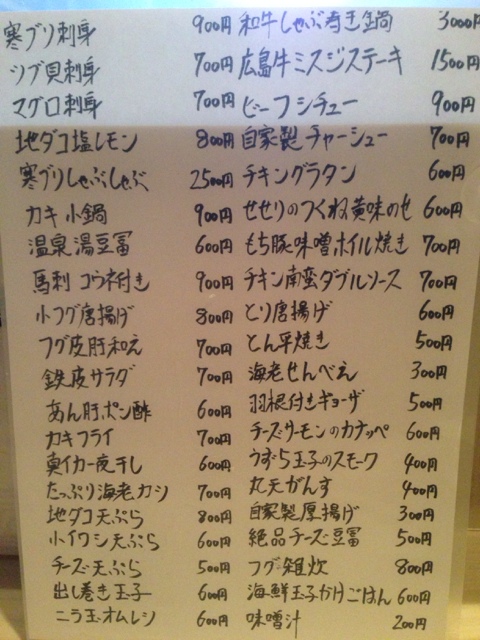 寒ブリ刺身 900円
ツブ貝刺身 700円
マグロ刺身 700円
地ダコ塩レモン 800円
寒ブリしゃぶしゃぶ 2500円
カキ小鍋 900円
温泉湯豆冨 600円
馬刺 コウネ付き 900円
小フグ唐揚げ 800円
フグ皮肝和え 700円
鉄皮サラダ 700円
あん肝ポン酢 600円
カキフライ 700円
真イカ一夜干し 600円
たっぷり海老カツ 700円
地ダコ天ぷら 800円
小イワシ天ぷら 600円
チーズ天ぷら 500円
出し巻き玉子 600円
ニラ玉オムレツ 600円
和牛しゃぶ寿き鍋 3000円
広島牛ミスジステーキ 1500円
ビーフシチュー 900円
自家製チャーシュー 700円
チキングラタン 600円
せせりのつくね黄味のせ 600円
もち豚味噌ホイル焼き 700円
チキン南蛮ダブルソース 700円
とり唐揚げ 600円
とん平焼き 500円
海老せんべえ 300円
羽根付きギョーザ 500円
チーズサーモンのカナッペ 600円
うずら玉子のスモーク 400円
丸天がんす 400円
自家製厚揚げ 300円
絶品チーズ豆冨 500円
フグ雑炊 800円
海鮮玉子かけごはん 600円
味噌汁 200円